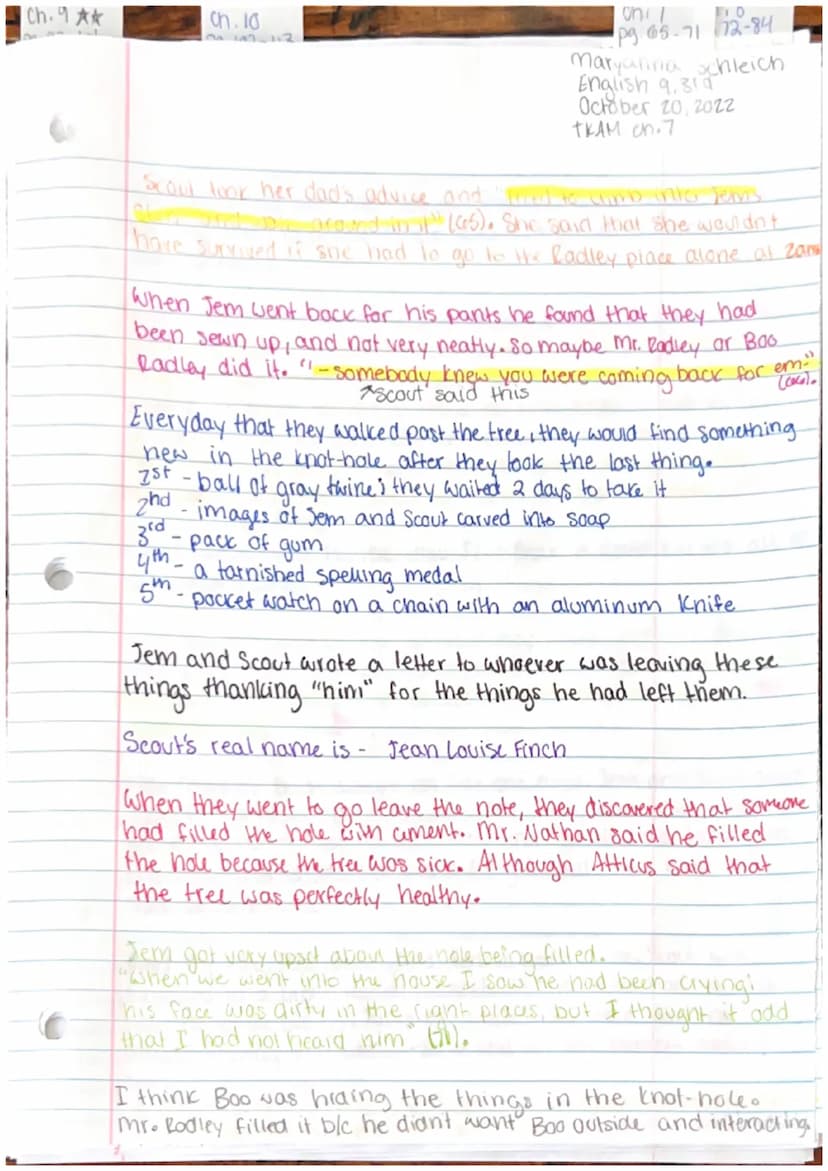 Ch. 9 ☆☆
Ch. 10
Ch. 7
pg 65-71
72-84
Maryanna Schleich
English 9, 3rd
October 20, 2022
TKAM ch. 7
Scout took her dad's advice and "tried to climb into Jem's
skin and walk around in it" (65). She said that she wouldn't
have survived if she had to go to the Radley place alone at 2am
When Jem went back for his pants he found that they had
been sewn up, and not very neatly. So maybe Mr. Radley or Boo
Radley did it. "-somebody knew you were coming back for em-"
(66).
↗Scout said this
Everyday that they walked past the tree, they would find something
new in the knot-hole after they took the last thing.
1st - ball of gray twine; they waited 2 days to take it
2nd - images of Jem and Scout carved into soap
3rd - pack of gum
4th - a tarnished spelling medal
5th - pocket watch on a chain with an aluminum Knife
Jem and Scout wrote a letter to whoever was leaving these
things thanking "him" for the things he had left them.
Scout's real name is - Jean Louise Finch
When they went to go leave the note, they discovered that someone
had filled the hole with cement. Mr. Nathan said he filled
the hole because the tree was sick. Although Atticus said that
the tree was perfectly healthy.
Jem got very upset about the hole being filled.
"When we went into the house I saw he had been crying;
his face was dirty in the right places, but I thought it odd
that I had not heard him" (71).
I think Boo was hiding the things in the knot-hole.
Mr. Radley filled it b/c he didnt want Boo outside and interacting.